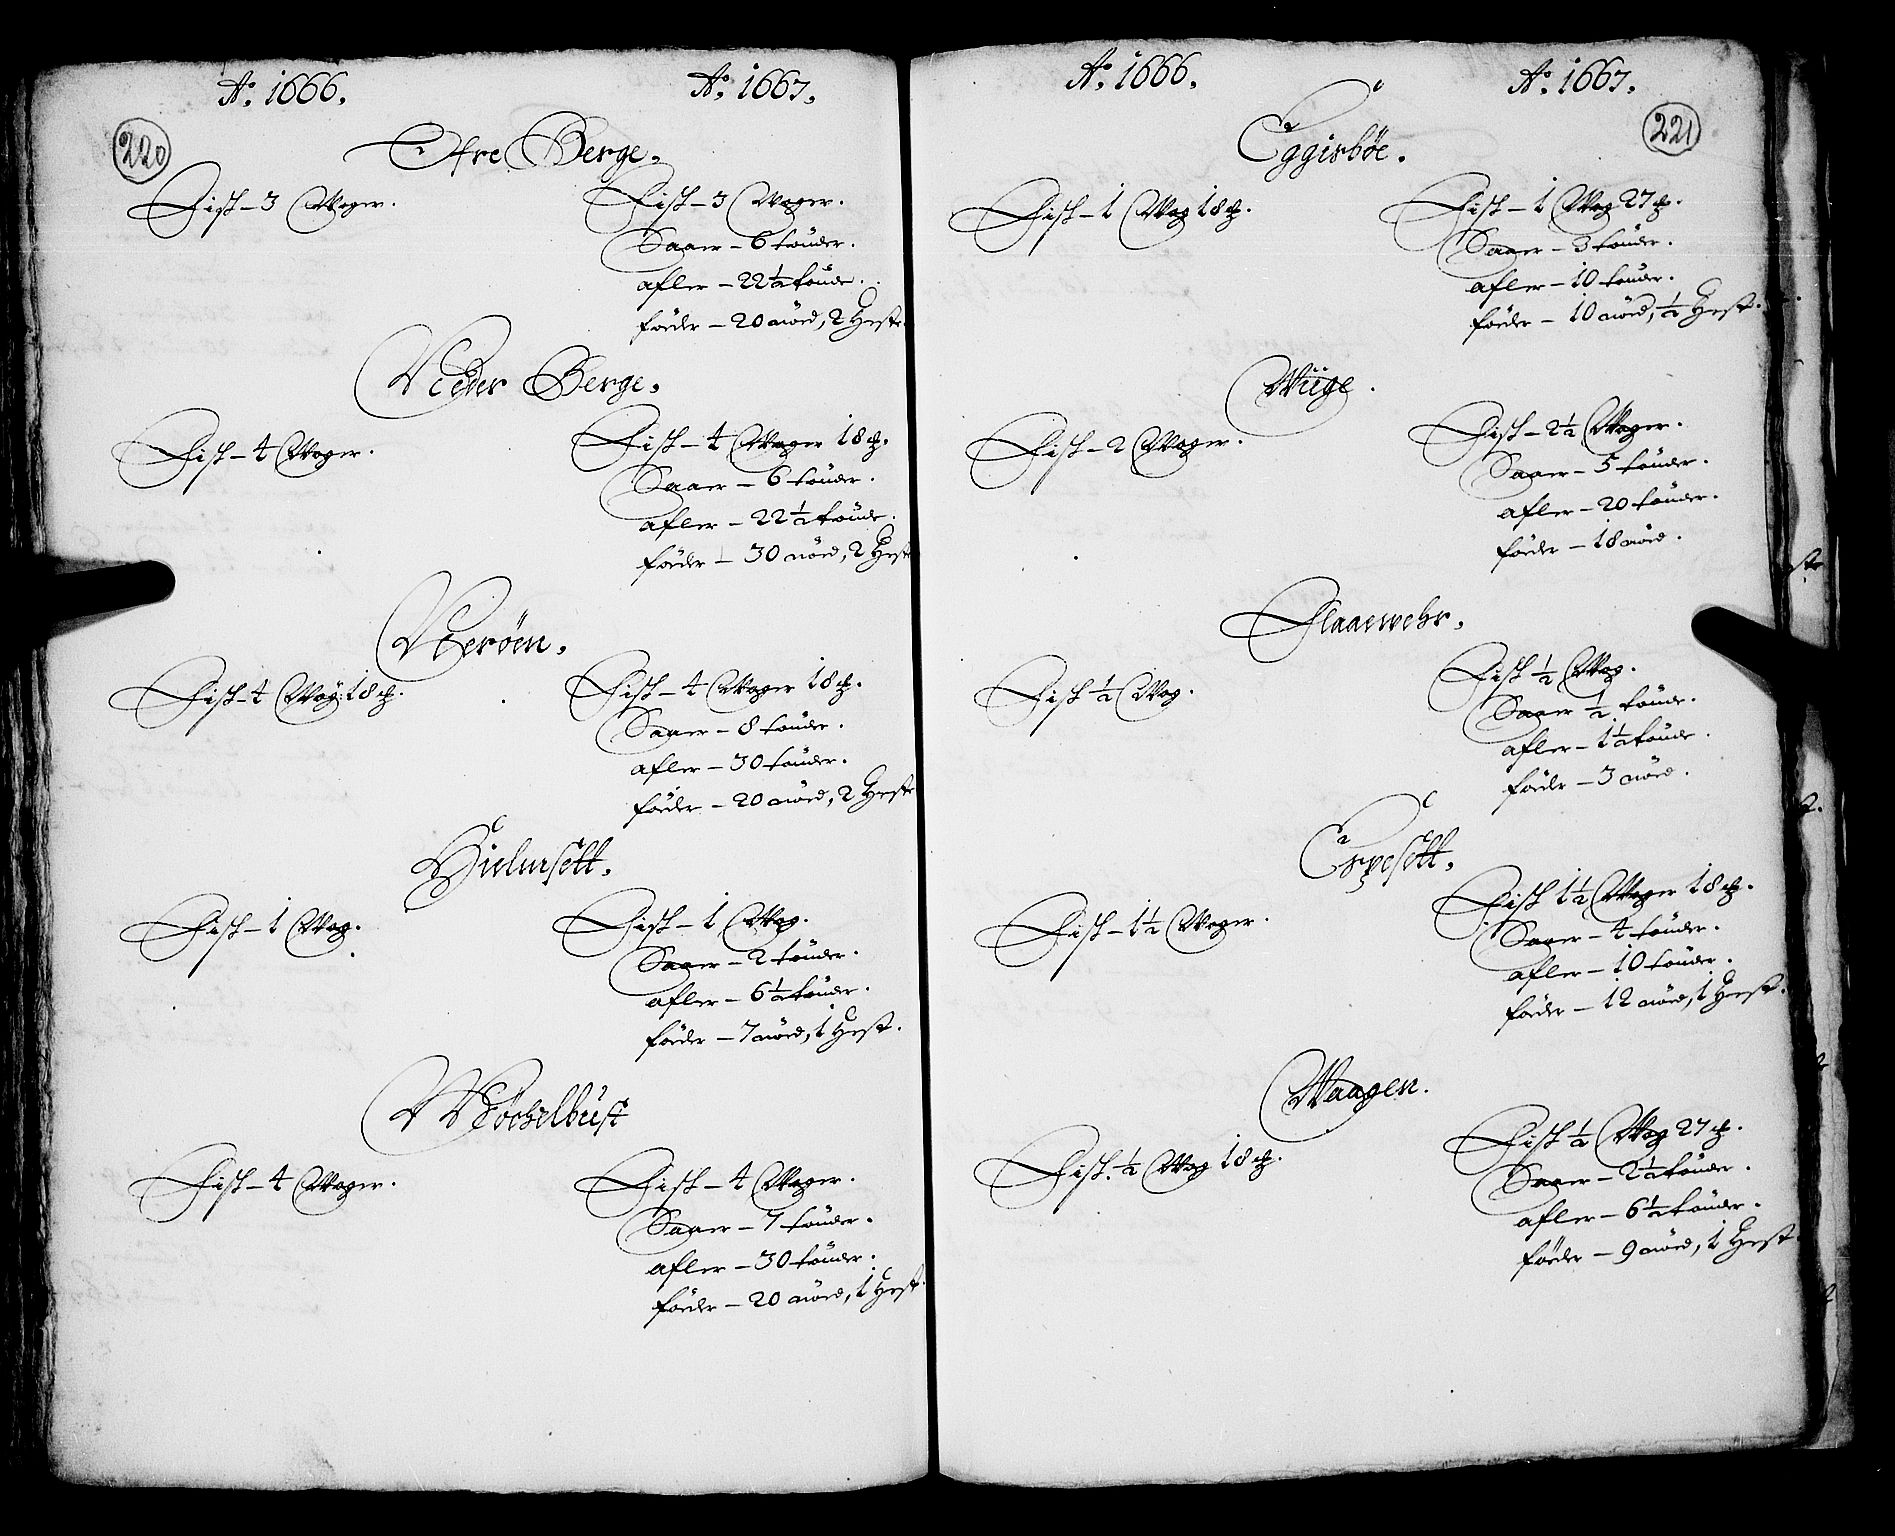 Aº. 1666.
Aº. 1667.
220
Öfre Berge.
Fisk - 3 Woger.
Fisk - 3 Woger.
Saaer - 6 tönder.
afler - 22½ tönde.
föeder - 20 nöed, 2 Heste.
Neder Berge.
Fisk - 4 Woger.
Fisk - 4 Woger 18 ꝶ.
Saaer - 6 tönder.
afler - 22½ tönde.
föeder - 30 nöed, 2 Hest
Neröen.
Fisk - 4 Wog: 18 ꝶ.
Fisk - 4 Woger 18 ꝶ.
Saaer - 8 tönder.
afler - 30 tönder.
föeder - 20 nöed, 2 Heste
Hielmsett.
Fisk - 1 Wog.
Fisk - 1 Wog.
Saaer - 2 tönder.
afler - 6½ tönder.
föeder - 7 nöed, 1 Hest.
Möchelbust
Fisk - 4 Woger.
Fisk - 4 Woger.
Saaer - 7 tönder.
afler - 30 tönder.
föeder - 20 nöed, 1 Hest.
Aº. 1666.
Aº. 1667.
221
Eggisböe.
Fisk - 1 Wog 18 ꝶ.
Fisk - 1 Wog 27 ꝶ.
Saaer - 3 tönder.
afler - 10 tönder.
föeder - 10 nöed, ½ Hest.
Wiige.
Fisk - 2 Woger.
Fisk - 2½ Woger.
Saaer - 5 tönder.
afler - 20 tönder.
föeder - 18 nöed.
Flaaewehr.
Fisk ½ Wog.
Fisk ½ Wog.
Saaer ½ tönde.
afler - 1½ tönde.
föeder - 3 nöed.
Erpesett.
Fisk - 1½ Woger.
Fisk 1½ Woger 18 ꝶ.
Saaer - 4 tönder.
afler - 10 tönder.
föeder - 12 nöed, 1 Hest.
Waagen.
Fisk. ½ Wog 18 ꝶ.
Fisk ½ Wog 27 ꝶ.
Saaer - 2½ tönde.
afler - 6½ tönder.
föeder - 9 nöed, 1 Hest.